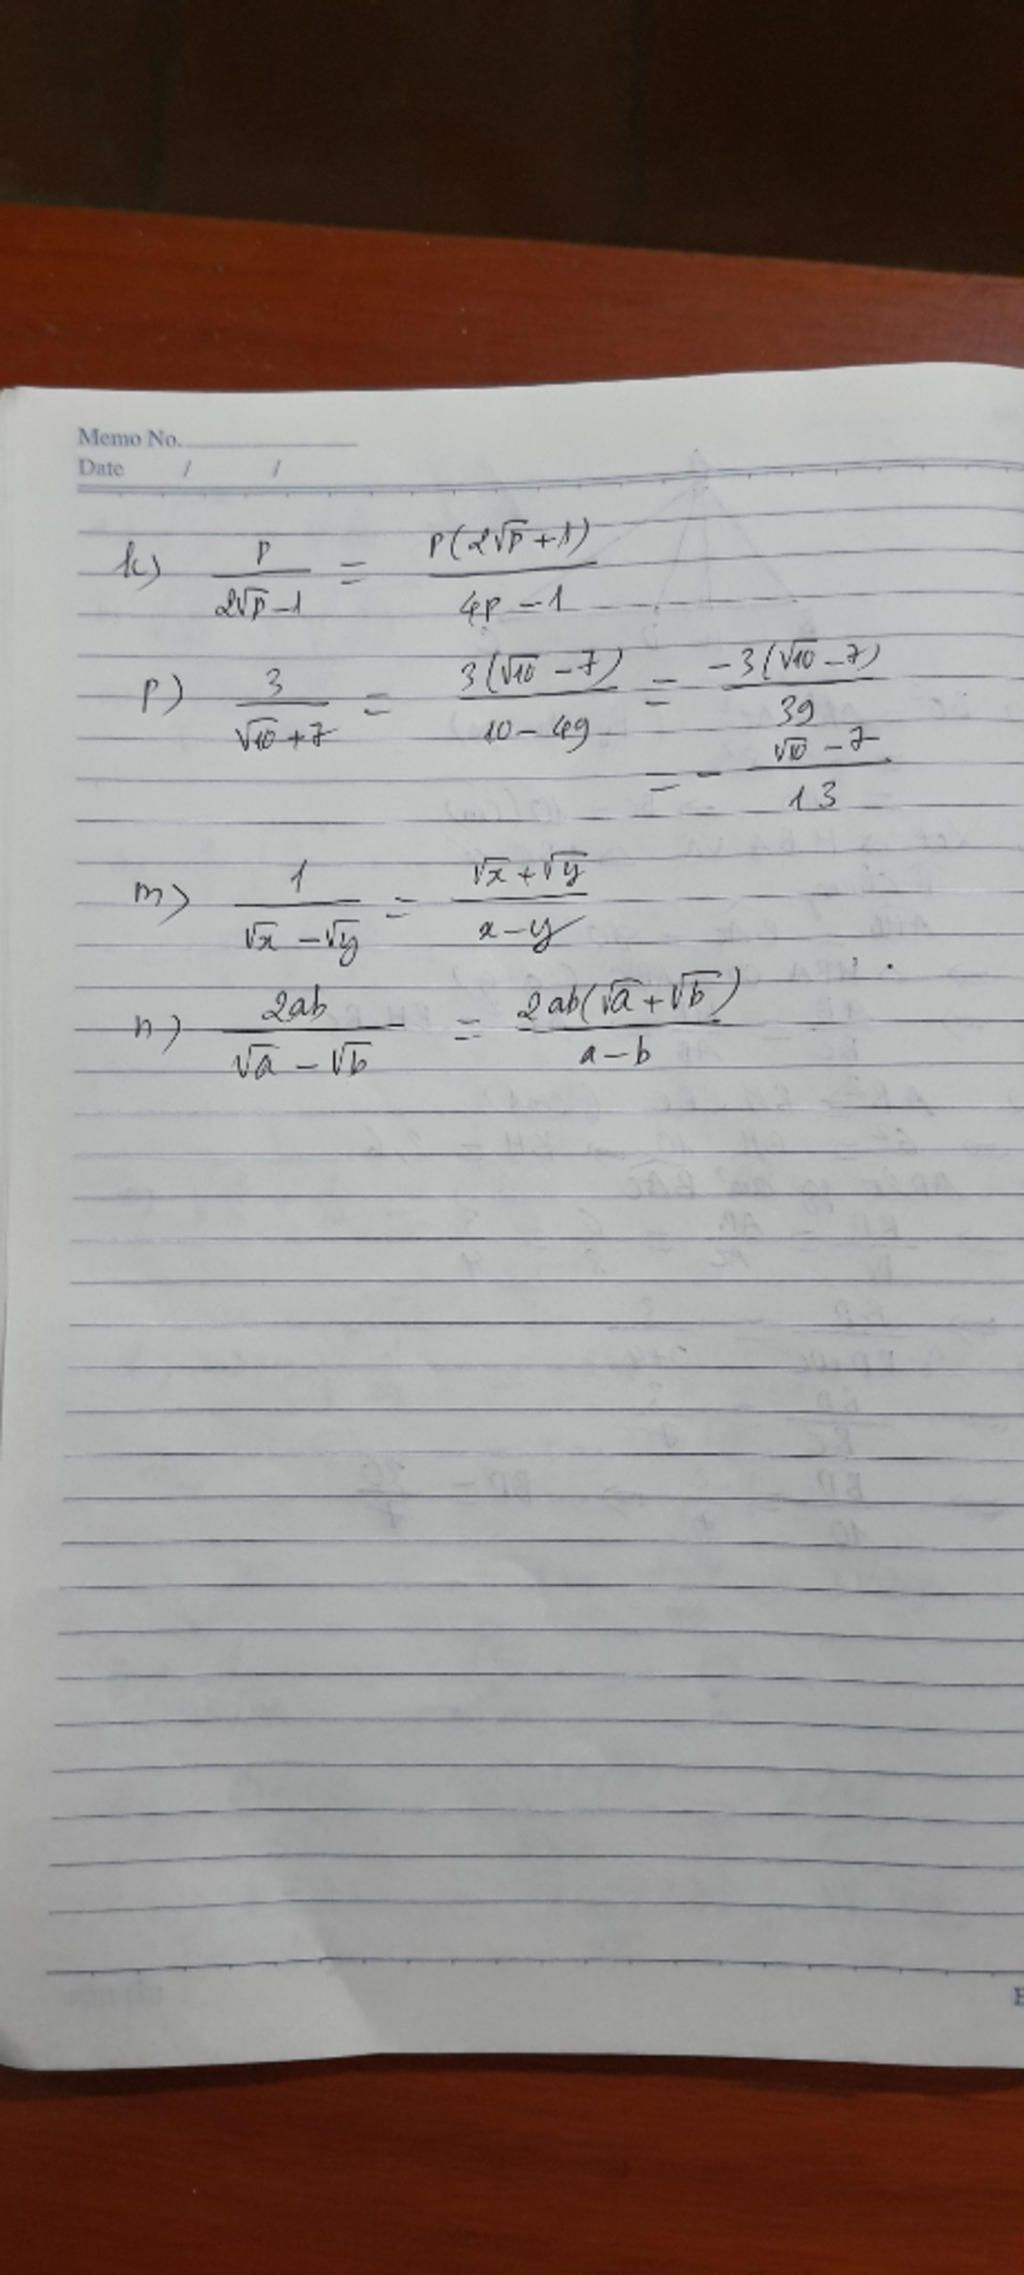 Memo No.
Date / /
k) p/(2√p - 1) = p(2√p + 1)/(4p - 1)
p) 3/(√10 + 7) = 3(√10 - 7)/(10 - 49) = -3(√10 - 7)/39
= - (√10 - 7)/13
m) 1/(√x - √y) = (√x + √y)/(x - y)
n) 2ab/(√a - √b) = 2ab(√a + √b)/(a - b)